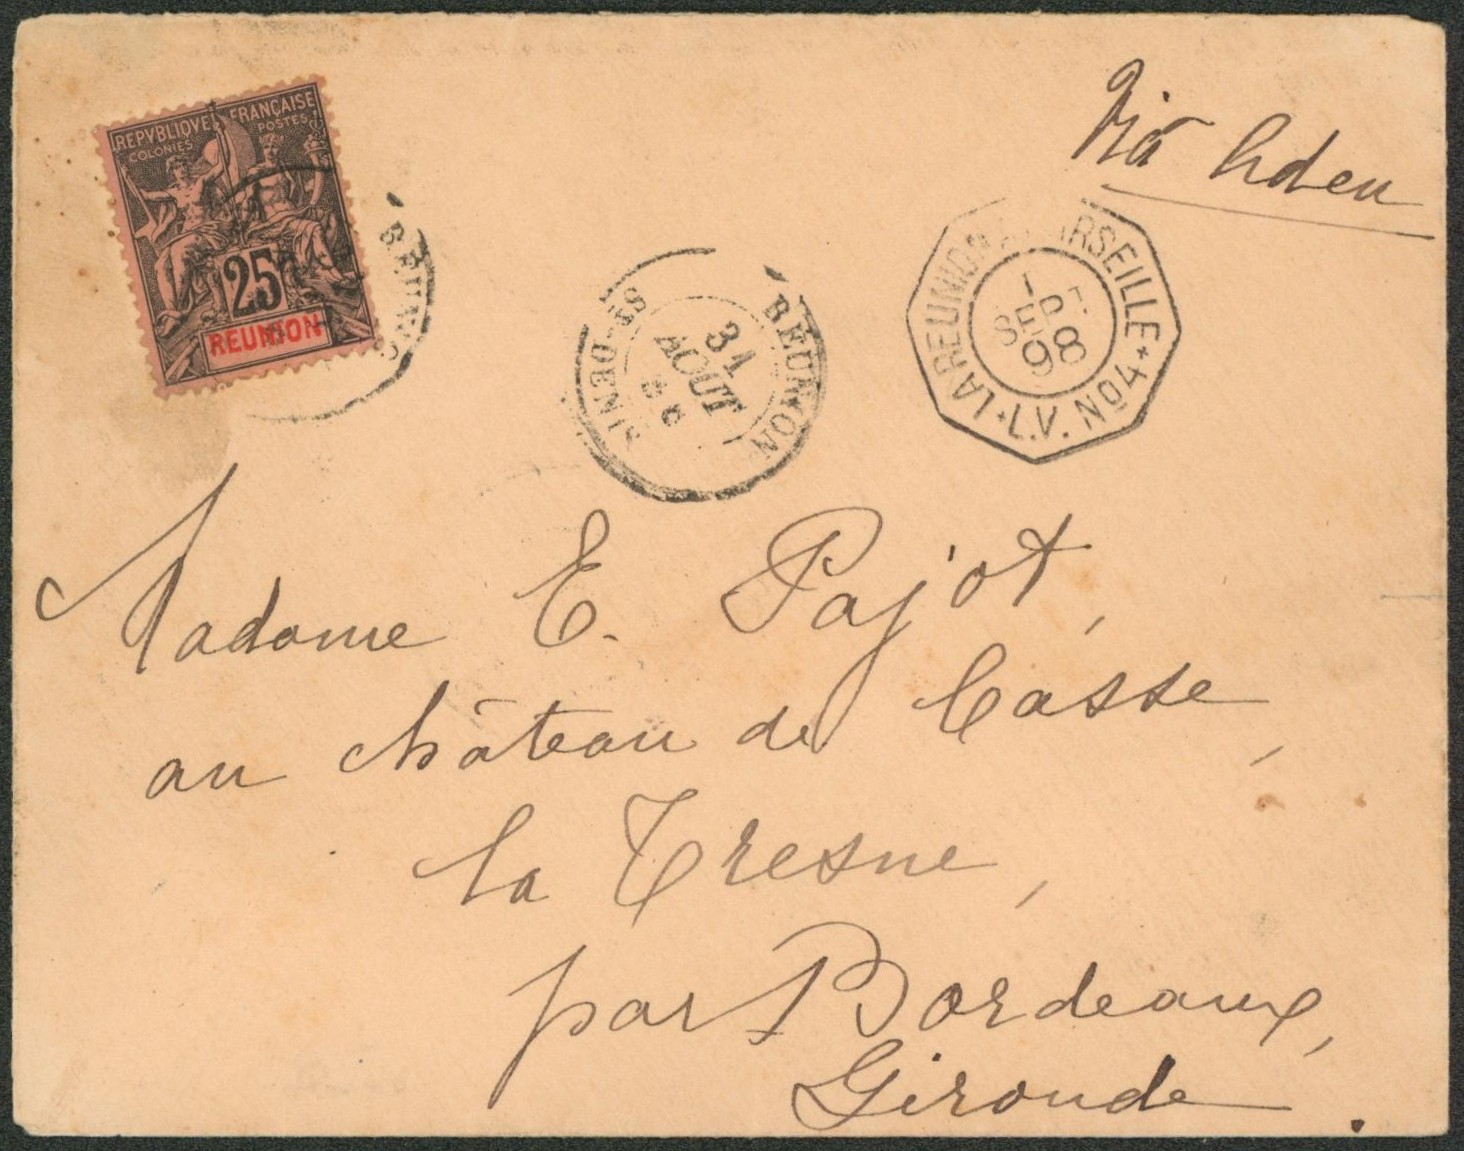 REPVBLIQVE FRANÇAISE
COLONIES POSTES
25
REUNION
REUNION
ST-DENIS
REUNION
31
AOUT
LA REUNION A MARSEILLE
L.V. Nº4
1
SEPT
98
Via Aden
Madame E. Pajot,
au château de Casse,
la Tresne,
par Bordeaux,
Gironde.